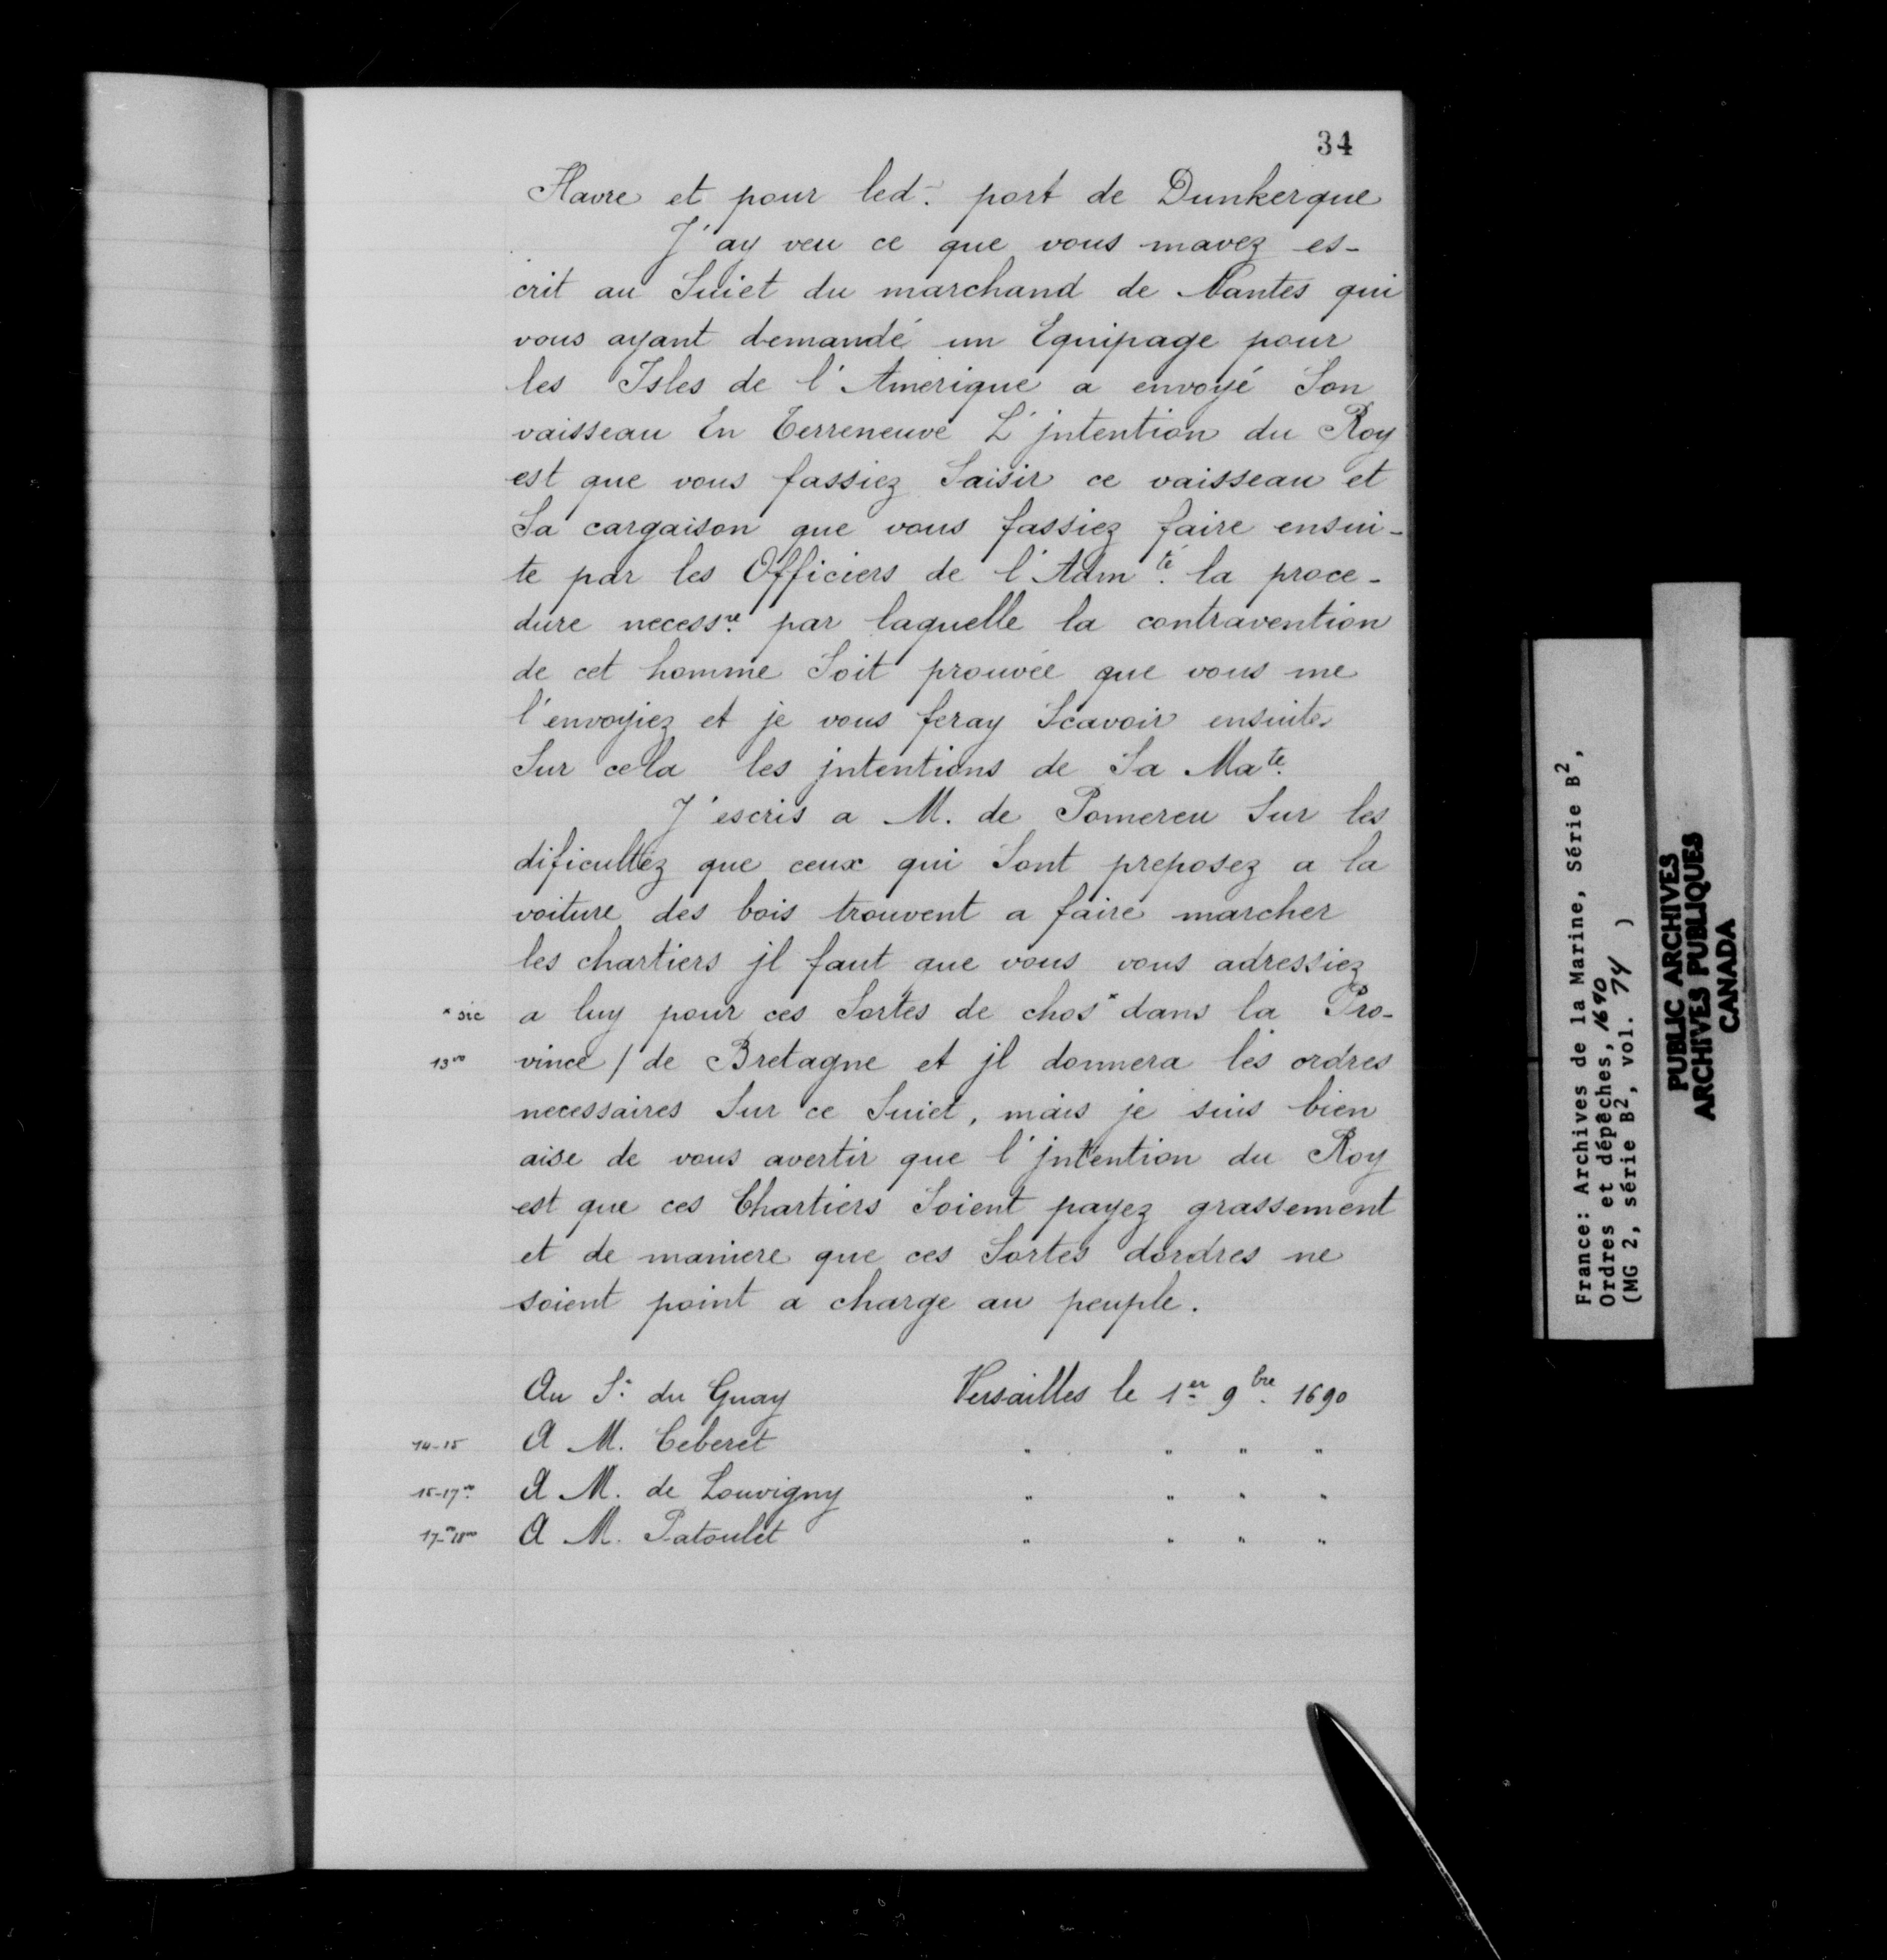 34
Havre et pour led. port de Dunkerque
J'ay veu ce que vous mavez es-
crit au Suiet du marchand de Nantes qui
vous ayant demandé un Equipage pour
les Isles de l'Amerique a envoyé Son
vaisseau En Terreneuve L'jntention du Roy
est que vous fassiez Saisir ce vaisseau et
Sa cargaison que vous fassiez faire ensui-
te par les Officiers de l'Adm.té la proce-
dure necess.re par laquelle la contravention
de cet homme Soit prouvée que vous me
l'envoyiez et je vous feray Scavoir ensuite
Sur cela les jntentions de Sa Ma.té
J'escris a M. de Pomereu Sur les
dificultez que ceux qui Sont preposez a la
voiture des bois trouvent a faire marcher
les chartiers jl faut que vous vous adressiez
* sic a luy pour ces Sortes de chos* dans la Pro-
13vo vince / de Bretagne et jl donnera les ordres
necessaires Sur ce Suiet, mais je suis bien
aise de vous avertir que l'jntention du Roy
est que ces Chartiers Soient payez grassement
et de maniere que ces Sortes dordres ne
soient point a charge au peuple.
Au S.r du Guay Versailles le 1er 9bre. 1690
14-15 A M. Ceberet " " " "
15-17vo A M. de Louvigny " " " "
17vo-18vo A M. Patoulet " " " "
France: Archives de la Marine, Série B2,
Ordres et dépêches, 1690
(MG 2, série B2, vol. 74 )
PUBLIC ARCHIVES
ARCHIVES PUBLIQUES
CANADA